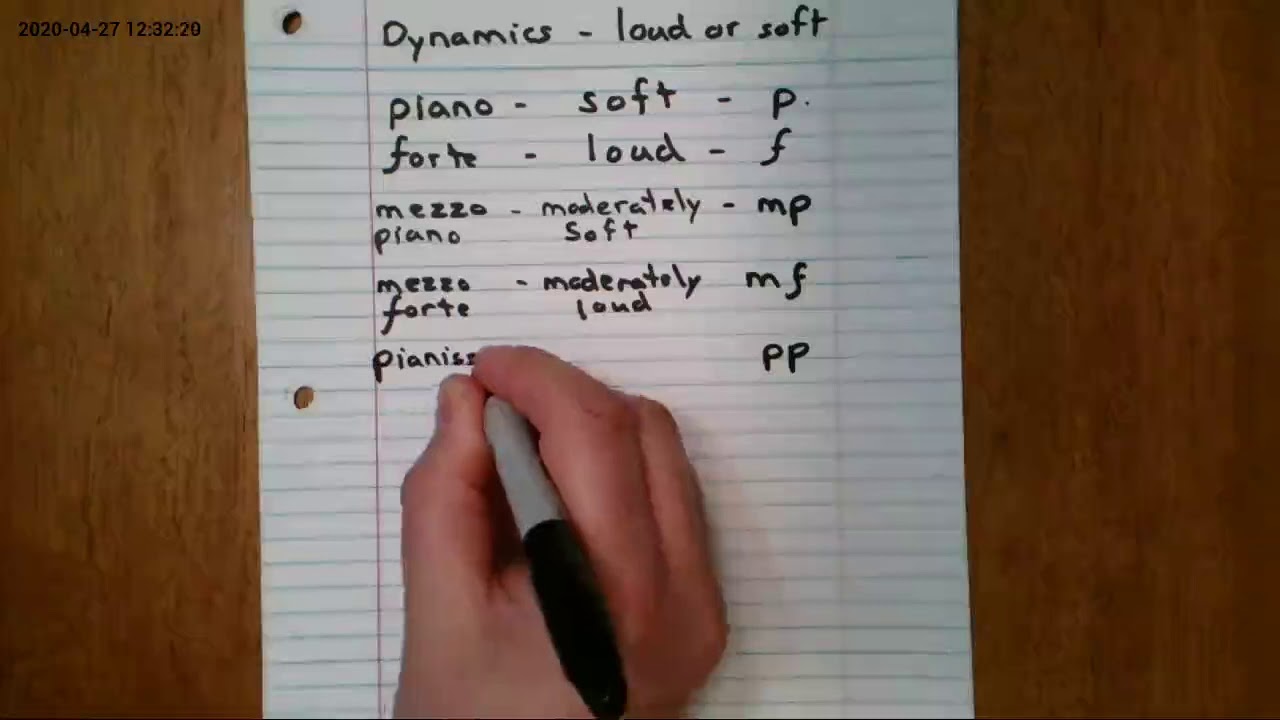 2020-04-27 12:32:20
Dynamics - loud or soft
piano - soft - p.
forte - loud - f
mezzo - moderately - mp
piano soft
mezzo - moderately mf
forte loud
pianiss pp